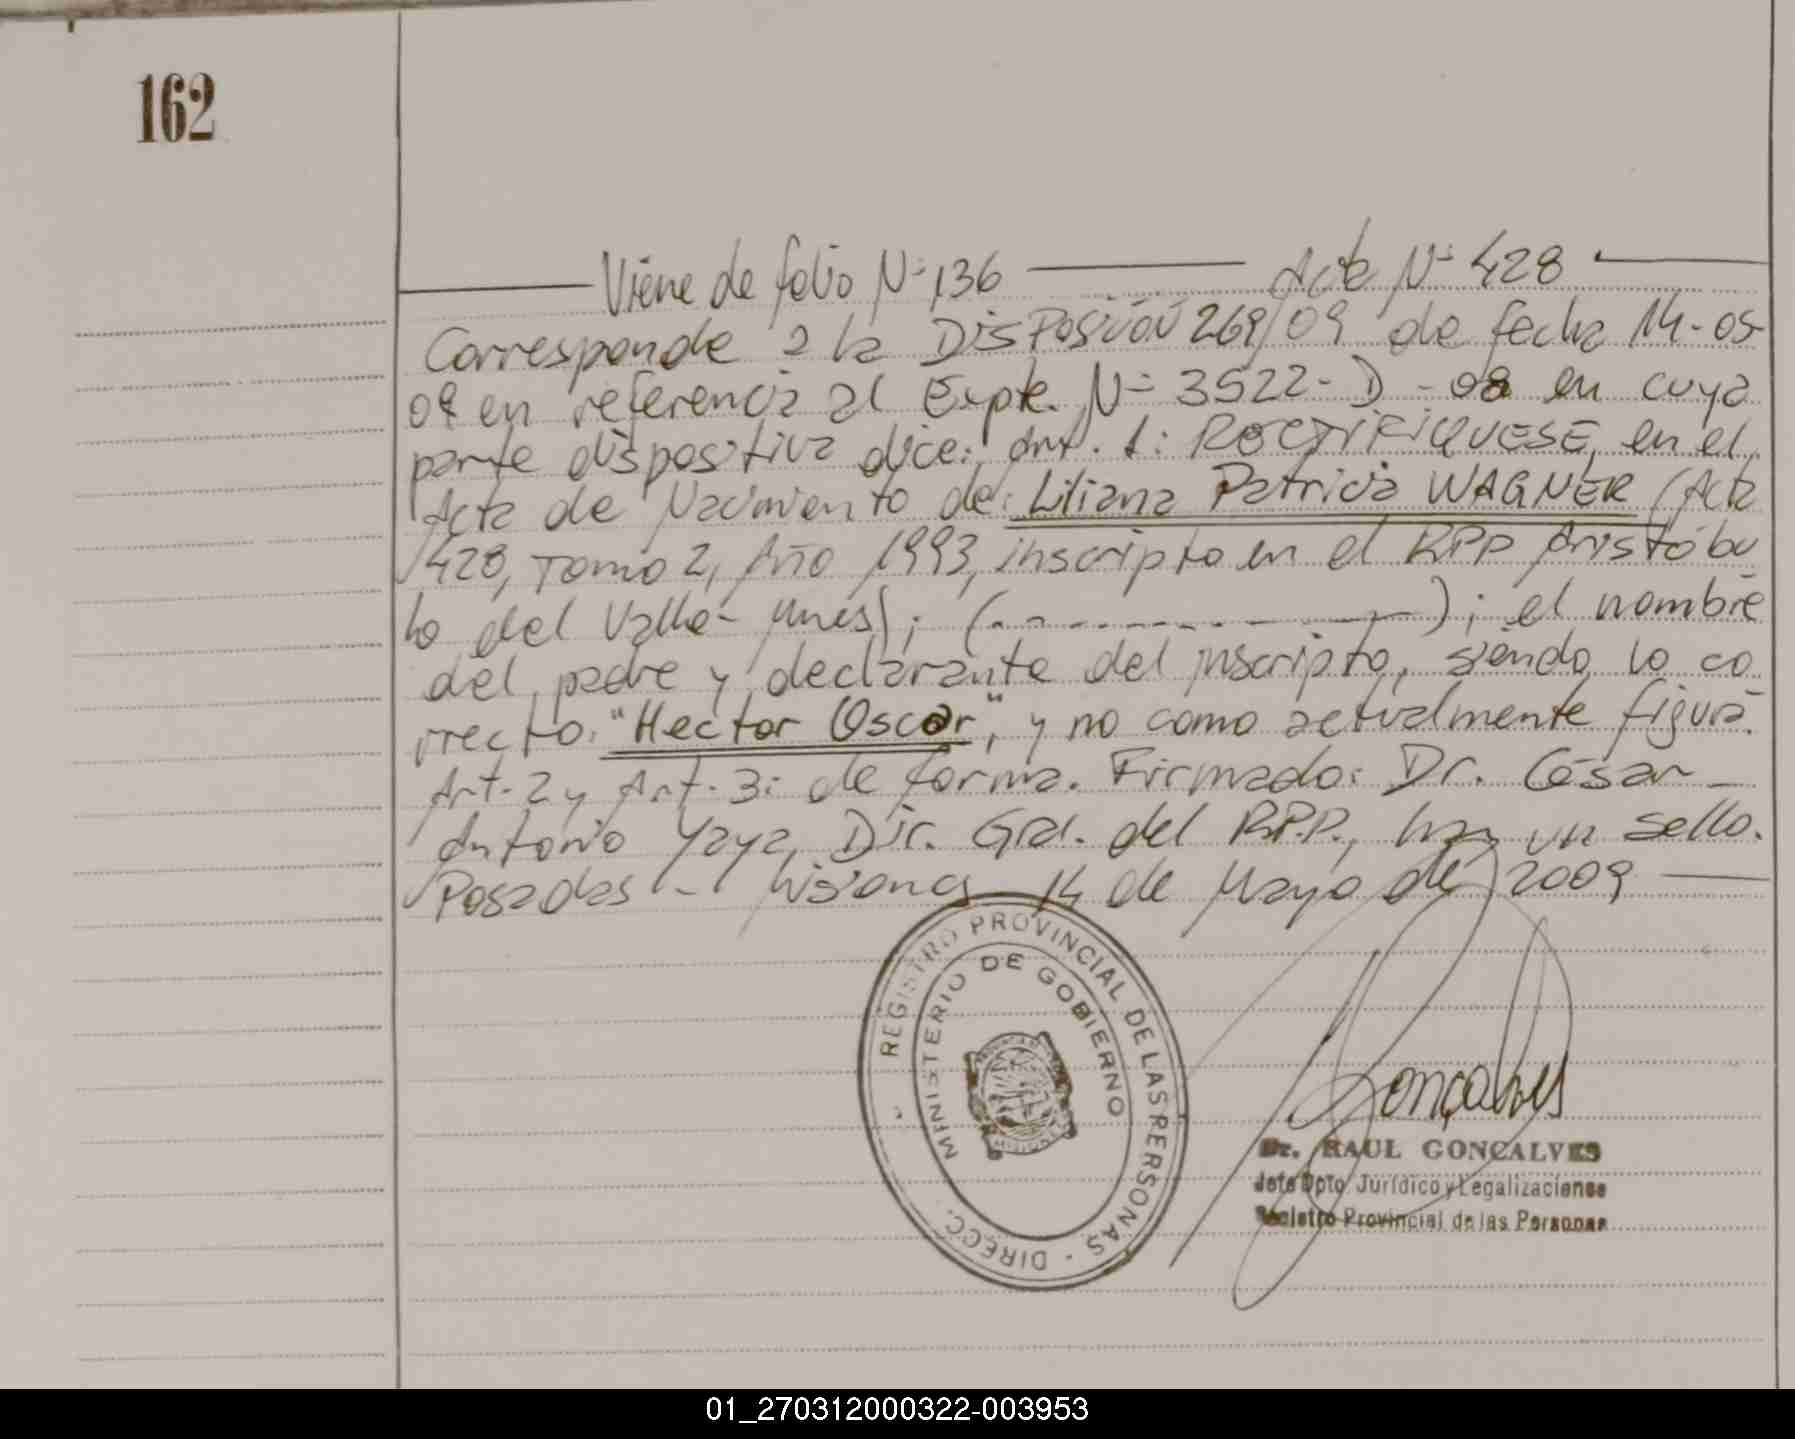 162
Viene de folio Nº 136 Acta Nº 428
Corresponde a la Disposición 269/09 de fecha 14-05-
09 en referencia al Expte. Nº 3522-D-08 en cuya
parte dispositiva dice: Art. 1: RECTIFIQUESE, en el
Acta de Nacimiento de: Liliana Patricia WAGNER (Acta
428, Tomo 2, Año 1993, inscripto en el RPP Aristóbu
lo del Valle- Mnes); (- - - - - - - - -); el nombre
del padre y declarante del inscripto, siendo lo co
rrecto: "Hector Oscar", y no como actualmente figura.
Art. 2 y Art. 3: de forma. Firmado: Dr. César
Antonio Yaya, Dir. Gral. del R.P.P., hay un sello.
Posadas - Misiones 14 de Mayo de 2009
REGISTRO PROVINCIAL DE LAS PERSONAS - DIRECC.
MINISTERIO DE GOBIERNO
Gonçalves
Dr. RAUL GONÇALVES
Jefe Dpto. Jurídico y Legalizaciones
Registro Provincial de las Personas
01_270312000322-003953